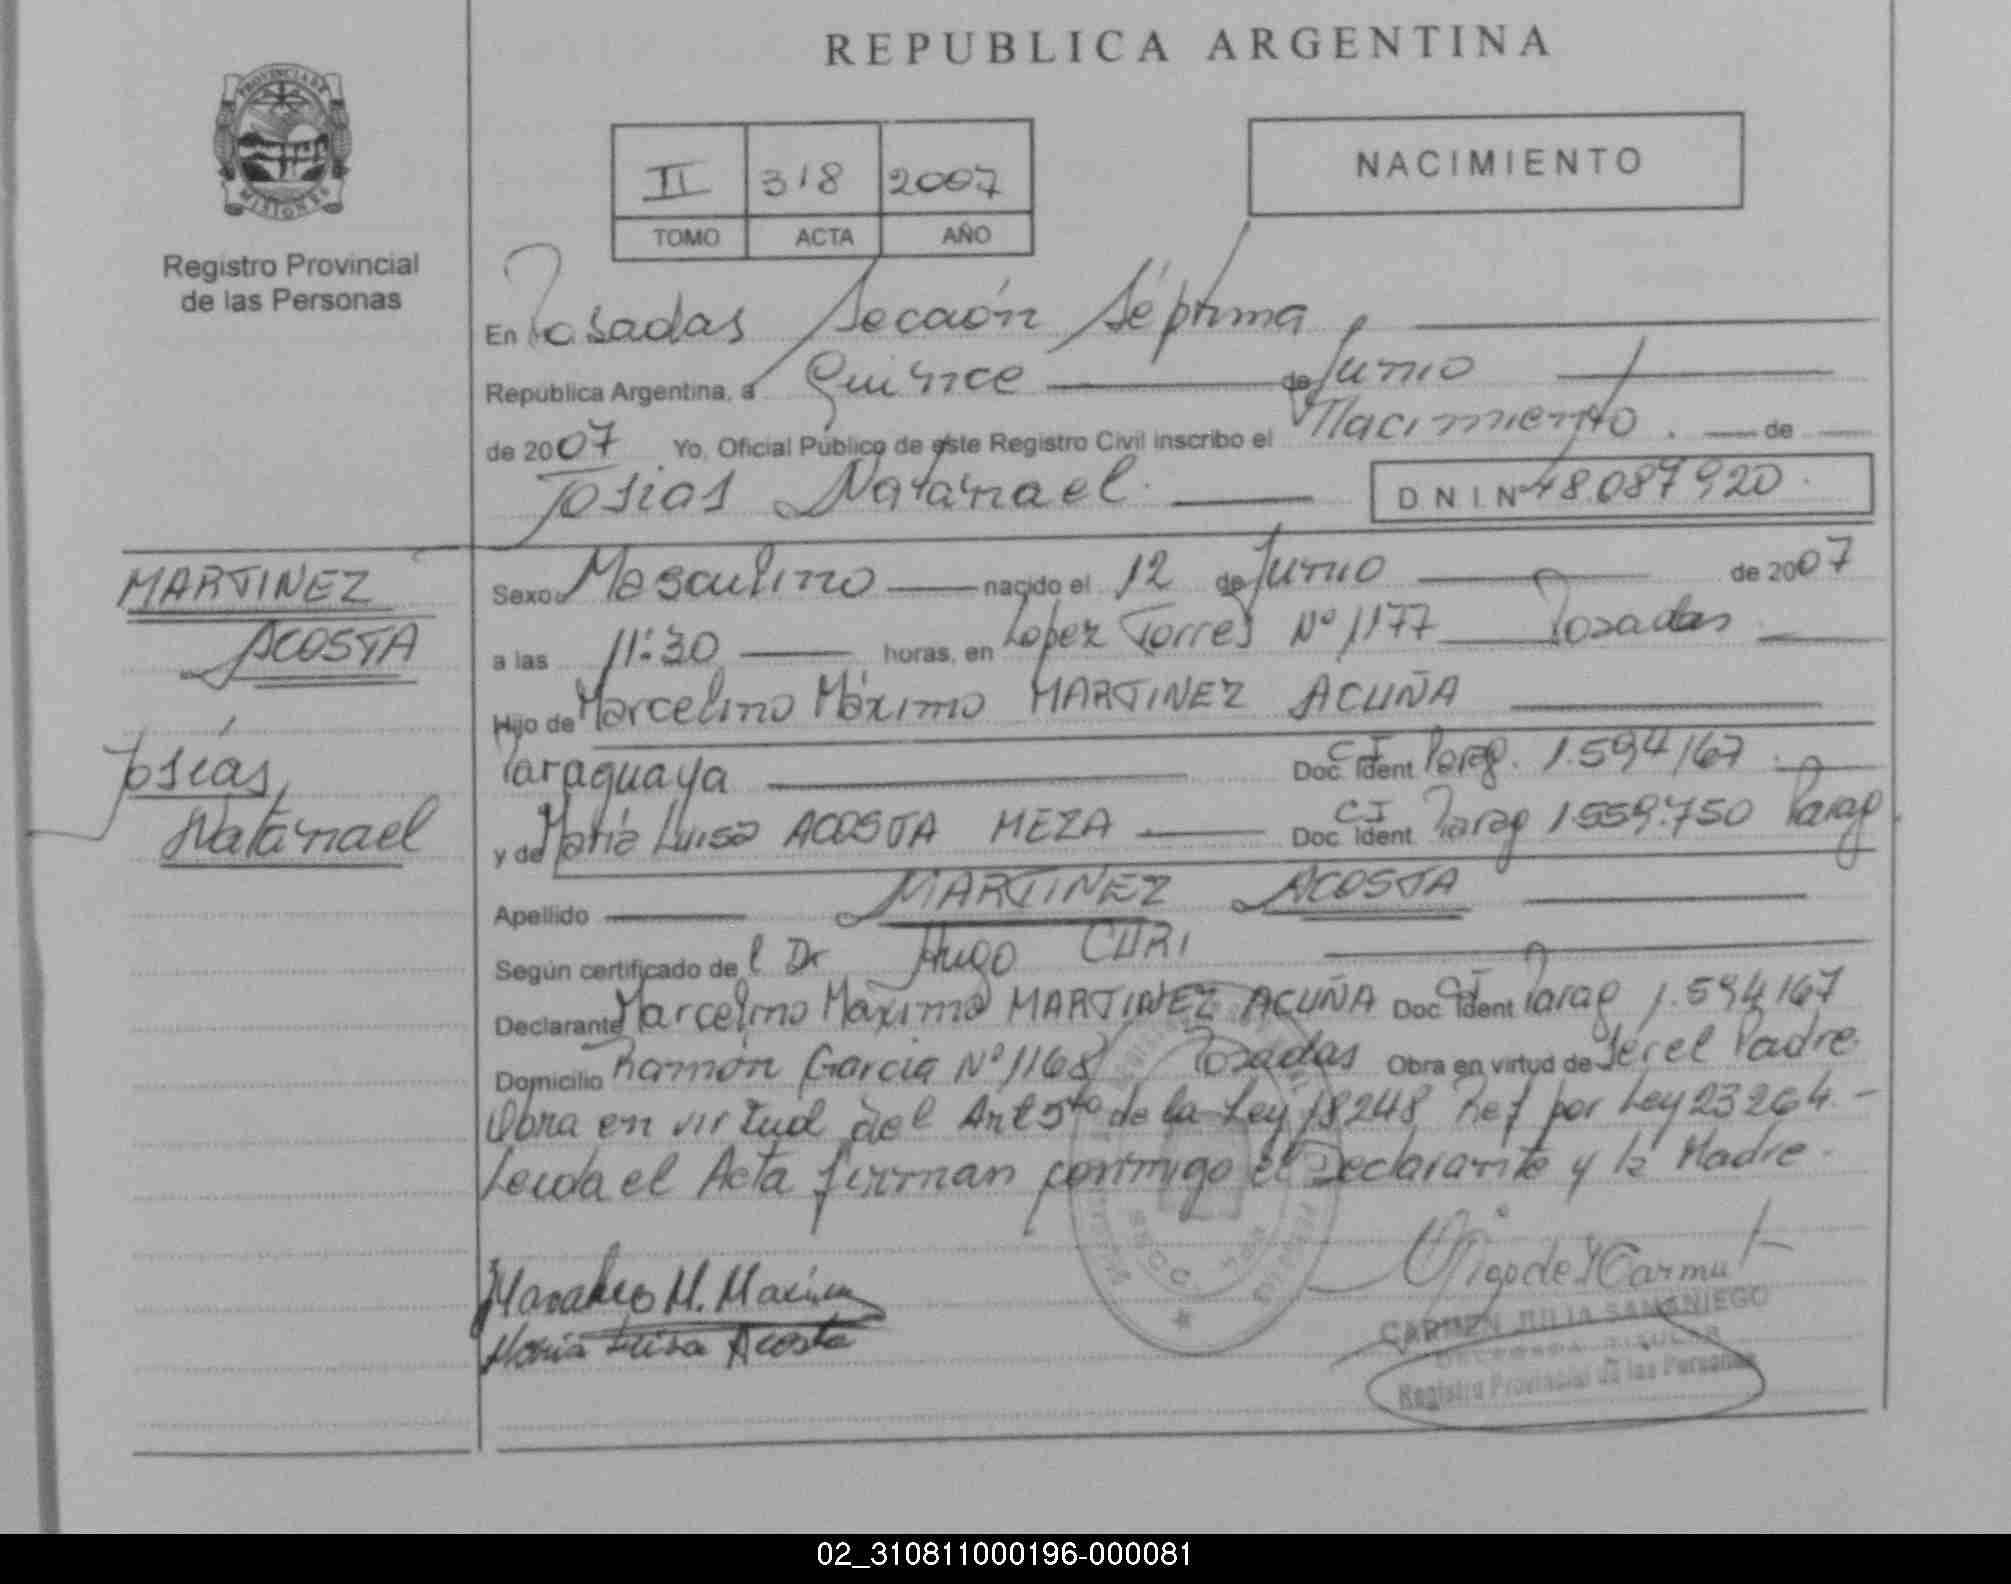 REPUBLICA ARGENTINA
PROVINCIA DE
MISIONES
Registro Provincial
de las Personas
II 318 2007
TOMO ACTA AÑO
NACIMIENTO
En Posadas Sección Séptima
Republica Argentina, a Quince de Junio
de 2007 Yo, Oficial Público de este Registro Civil inscribo el Nacimiento. de
Josias Natanael. D N I N 48.087920.
MARTINEZ
ACOSTA
Josías,
Natanael
Sexo Masculino nacido el 12 de Junio de 2007
a las 11:30 horas, en Lopez Torres Nº 1177 Posadas
Hijo de Marcelino Máximo MARTINEZ ACUÑA
Paraguaya Doc. Ident CI Parag. 1.594167
y de María Luisa ACOSTA MEZA Doc. Ident. CI Parag 1559.750 Parag
Apellido MARTINEZ ACOSTA
Según certificado de l Dr Hugo CURI
Declarante Marcelino Maximo MARTINEZ ACUÑA Doc. Ident CI Parag 1.594167
Domicilio Ramón Garcia Nº 1168 Posadas Obra en virtud de Ser el Padre
Obra en virtud del Art 5to de la Ley 18248 Ref por Ley 23264.-
Leida el Acta firman conmigo el Declarante y la Madre.
M. Maxim
Maria Luisa Acosta
CARMEN JULIA SAMANIEGO
DELEGADA TITULAR
Registro Provincial de las Personas
02_310811000196-000081